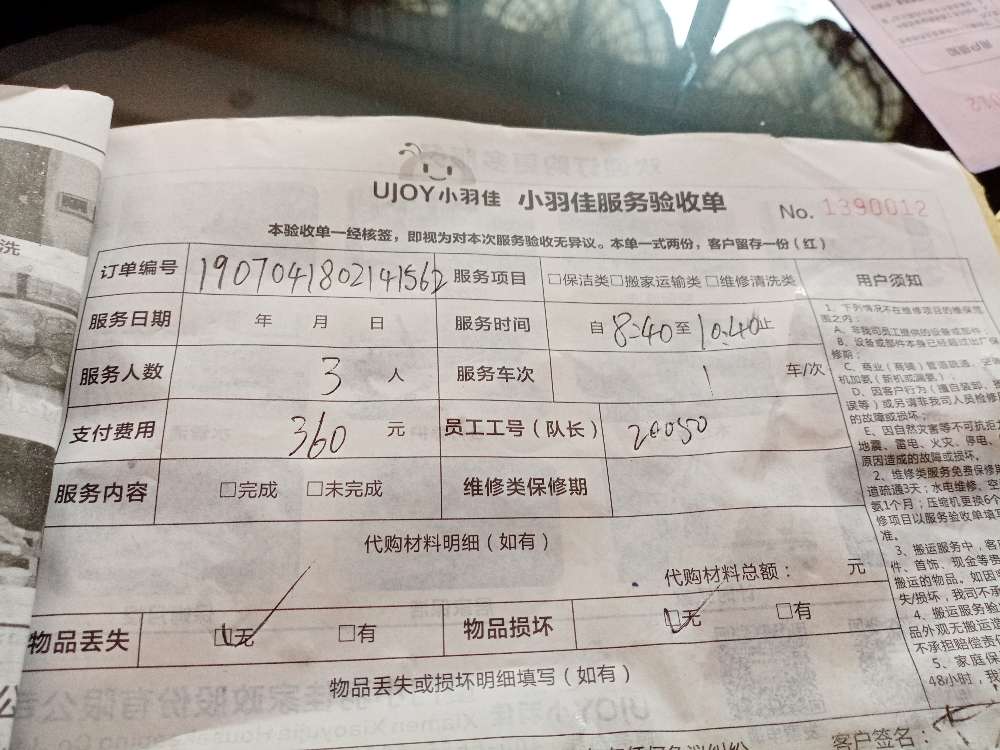 洗
UJOY小羽佳 小羽佳服务验收单 No. 1390012
本验收单一经核签，即视为对本次服务验收无异议。本单一式两份，客户留存一份（红）
订单编号 1907041802141562 服务项目 □保洁类□搬家运输类 □维修清洗类 用户须知
服务日期 年 月 日 服务时间 自 8:40 至 10:40 止
服务人数 3 人 服务车次 1 车/次
支付费用 360 元 员工工号（队长） 20050
服务内容 □完成 □未完成 维修类保修期
代购材料明细（如有）
代购材料总额： 元
物品丢失 □无 □有 物品损坏 □无 □有
物品丢失或损坏明细填写（如有）
客户签名：
1、下列情况不在维修项目的维保范
围之内：
A、非我司员工提供的设备或部件；
B、设备或部件本身已经超过出厂保
修期；
C、商业（商铺）管道疏通，空
机加氨（新机或漏氨）
D、因客户行为（擅自装卸、
误等）或另请非我司人员检修
的故障或损坏；
E、因自然灾害等不可抗拒
地震、雷电、火灾、停电、
原因造成的故障或损坏。
2、维修类服务免费保修期
道疏通3天；水电维修、空
氨1个月；压缩机更换6个
修项目以服务验收单填写
准。
3、搬运服务中，客
件、首饰、现金等贵
搬运的物品。如因
失/损坏，我司不承
4、搬运服务验
品外观无搬运造
不承担赔偿责
5、家庭保
48小时，我